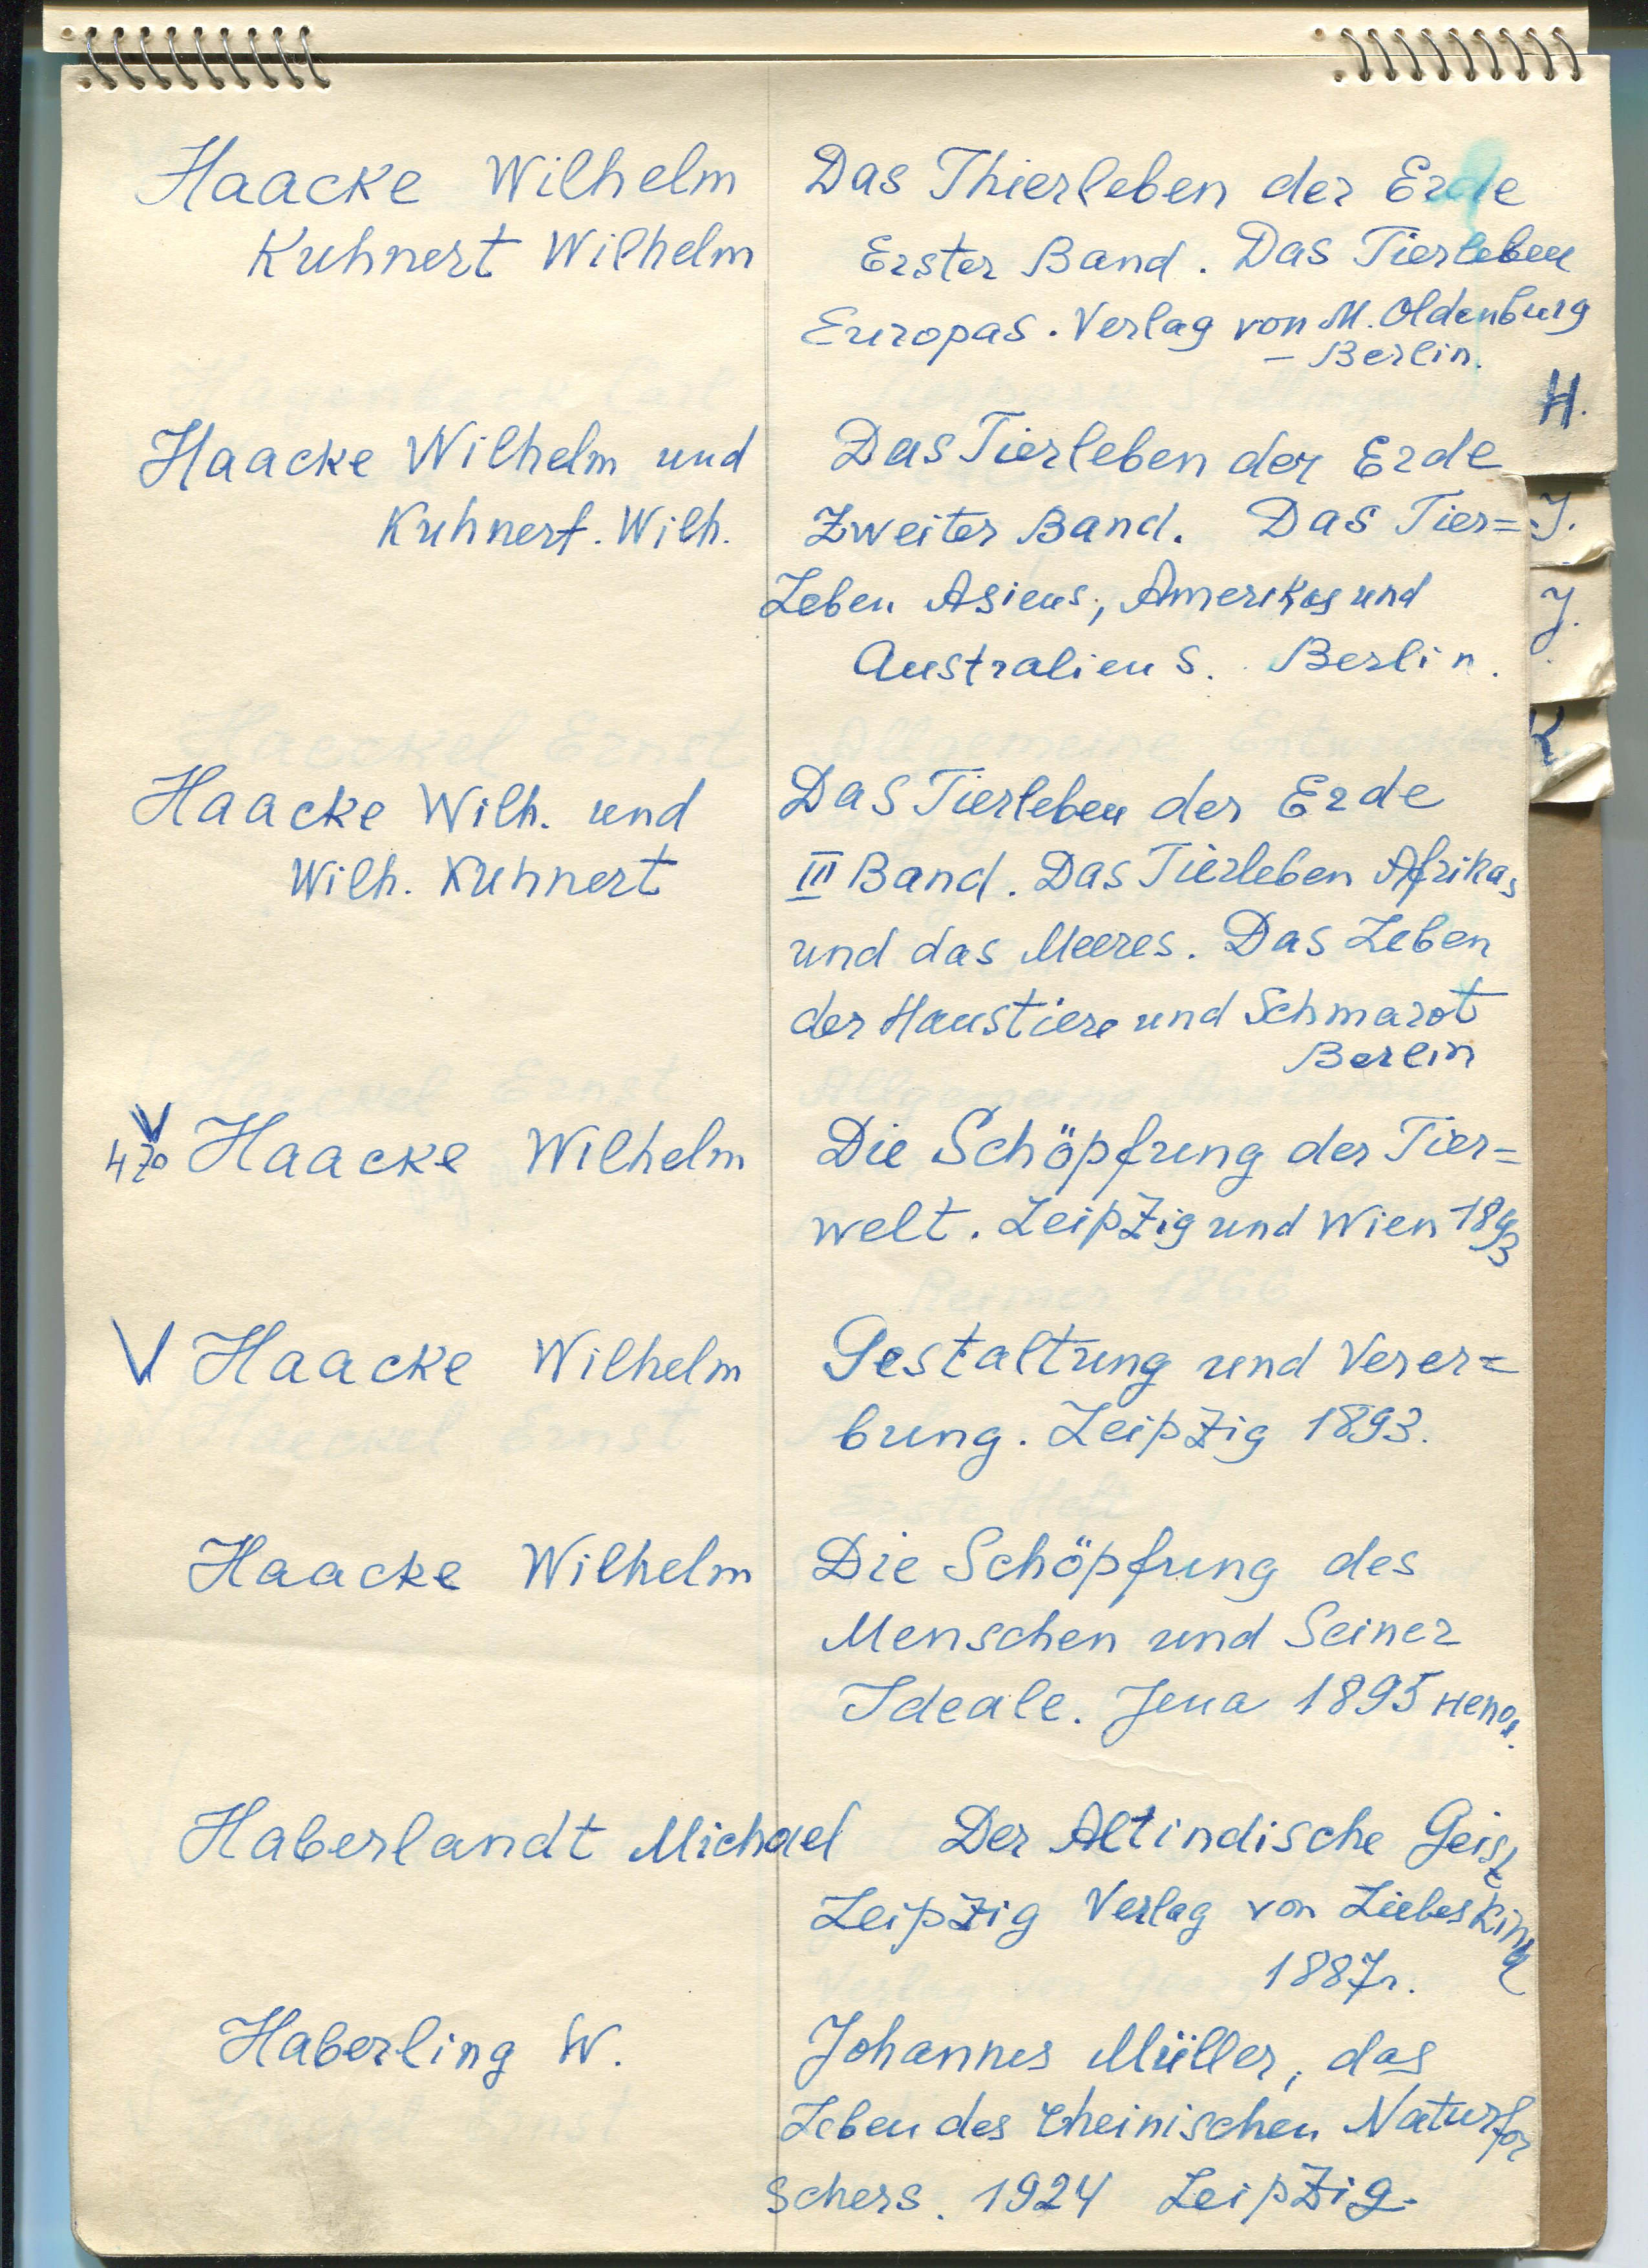 Haacke Wilhelm
Kuhnert Wilhelm
Das Thierleben der Erde
Erster Band. Das Tierleben
Europas. Verlag von M. Oldenburg
– Berlin.
H.
Haacke Wilhelm und
Kuhnert. Wilh.
Das Tierleben der Erde
Zweiter Band. Das Tier=
Leben Asiens, Amerikas und
Australiens. Berlin.
J.
J.
K
Haacke Wilh. und
Wilh. Kuhnert
Das Tierleben der Erde
III Band. Das Tierleben Afrikas
und das Meeres. Das Leben
der Haustiere und Schmarot
Berlin
V
470 Haacke Wilhelm
Die Schöpfung der Tier=
welt. Leipzig und Wien 1893
V Haacke Wilhelm
Gestaltung und Verer=
bung. Leipzig 1893.
Haacke Wilhelm
Die Schöpfung des
Menschen und Seiner
Ideale. Jena 1895
Haberlandt Michael
Der Altindische Geist
Leipzig Verlag von Liebeskind
1887r.
Haberling W.
Johannes Müller, das
Leben des rheinischen Naturfor
schers. 1924 Leipzig.